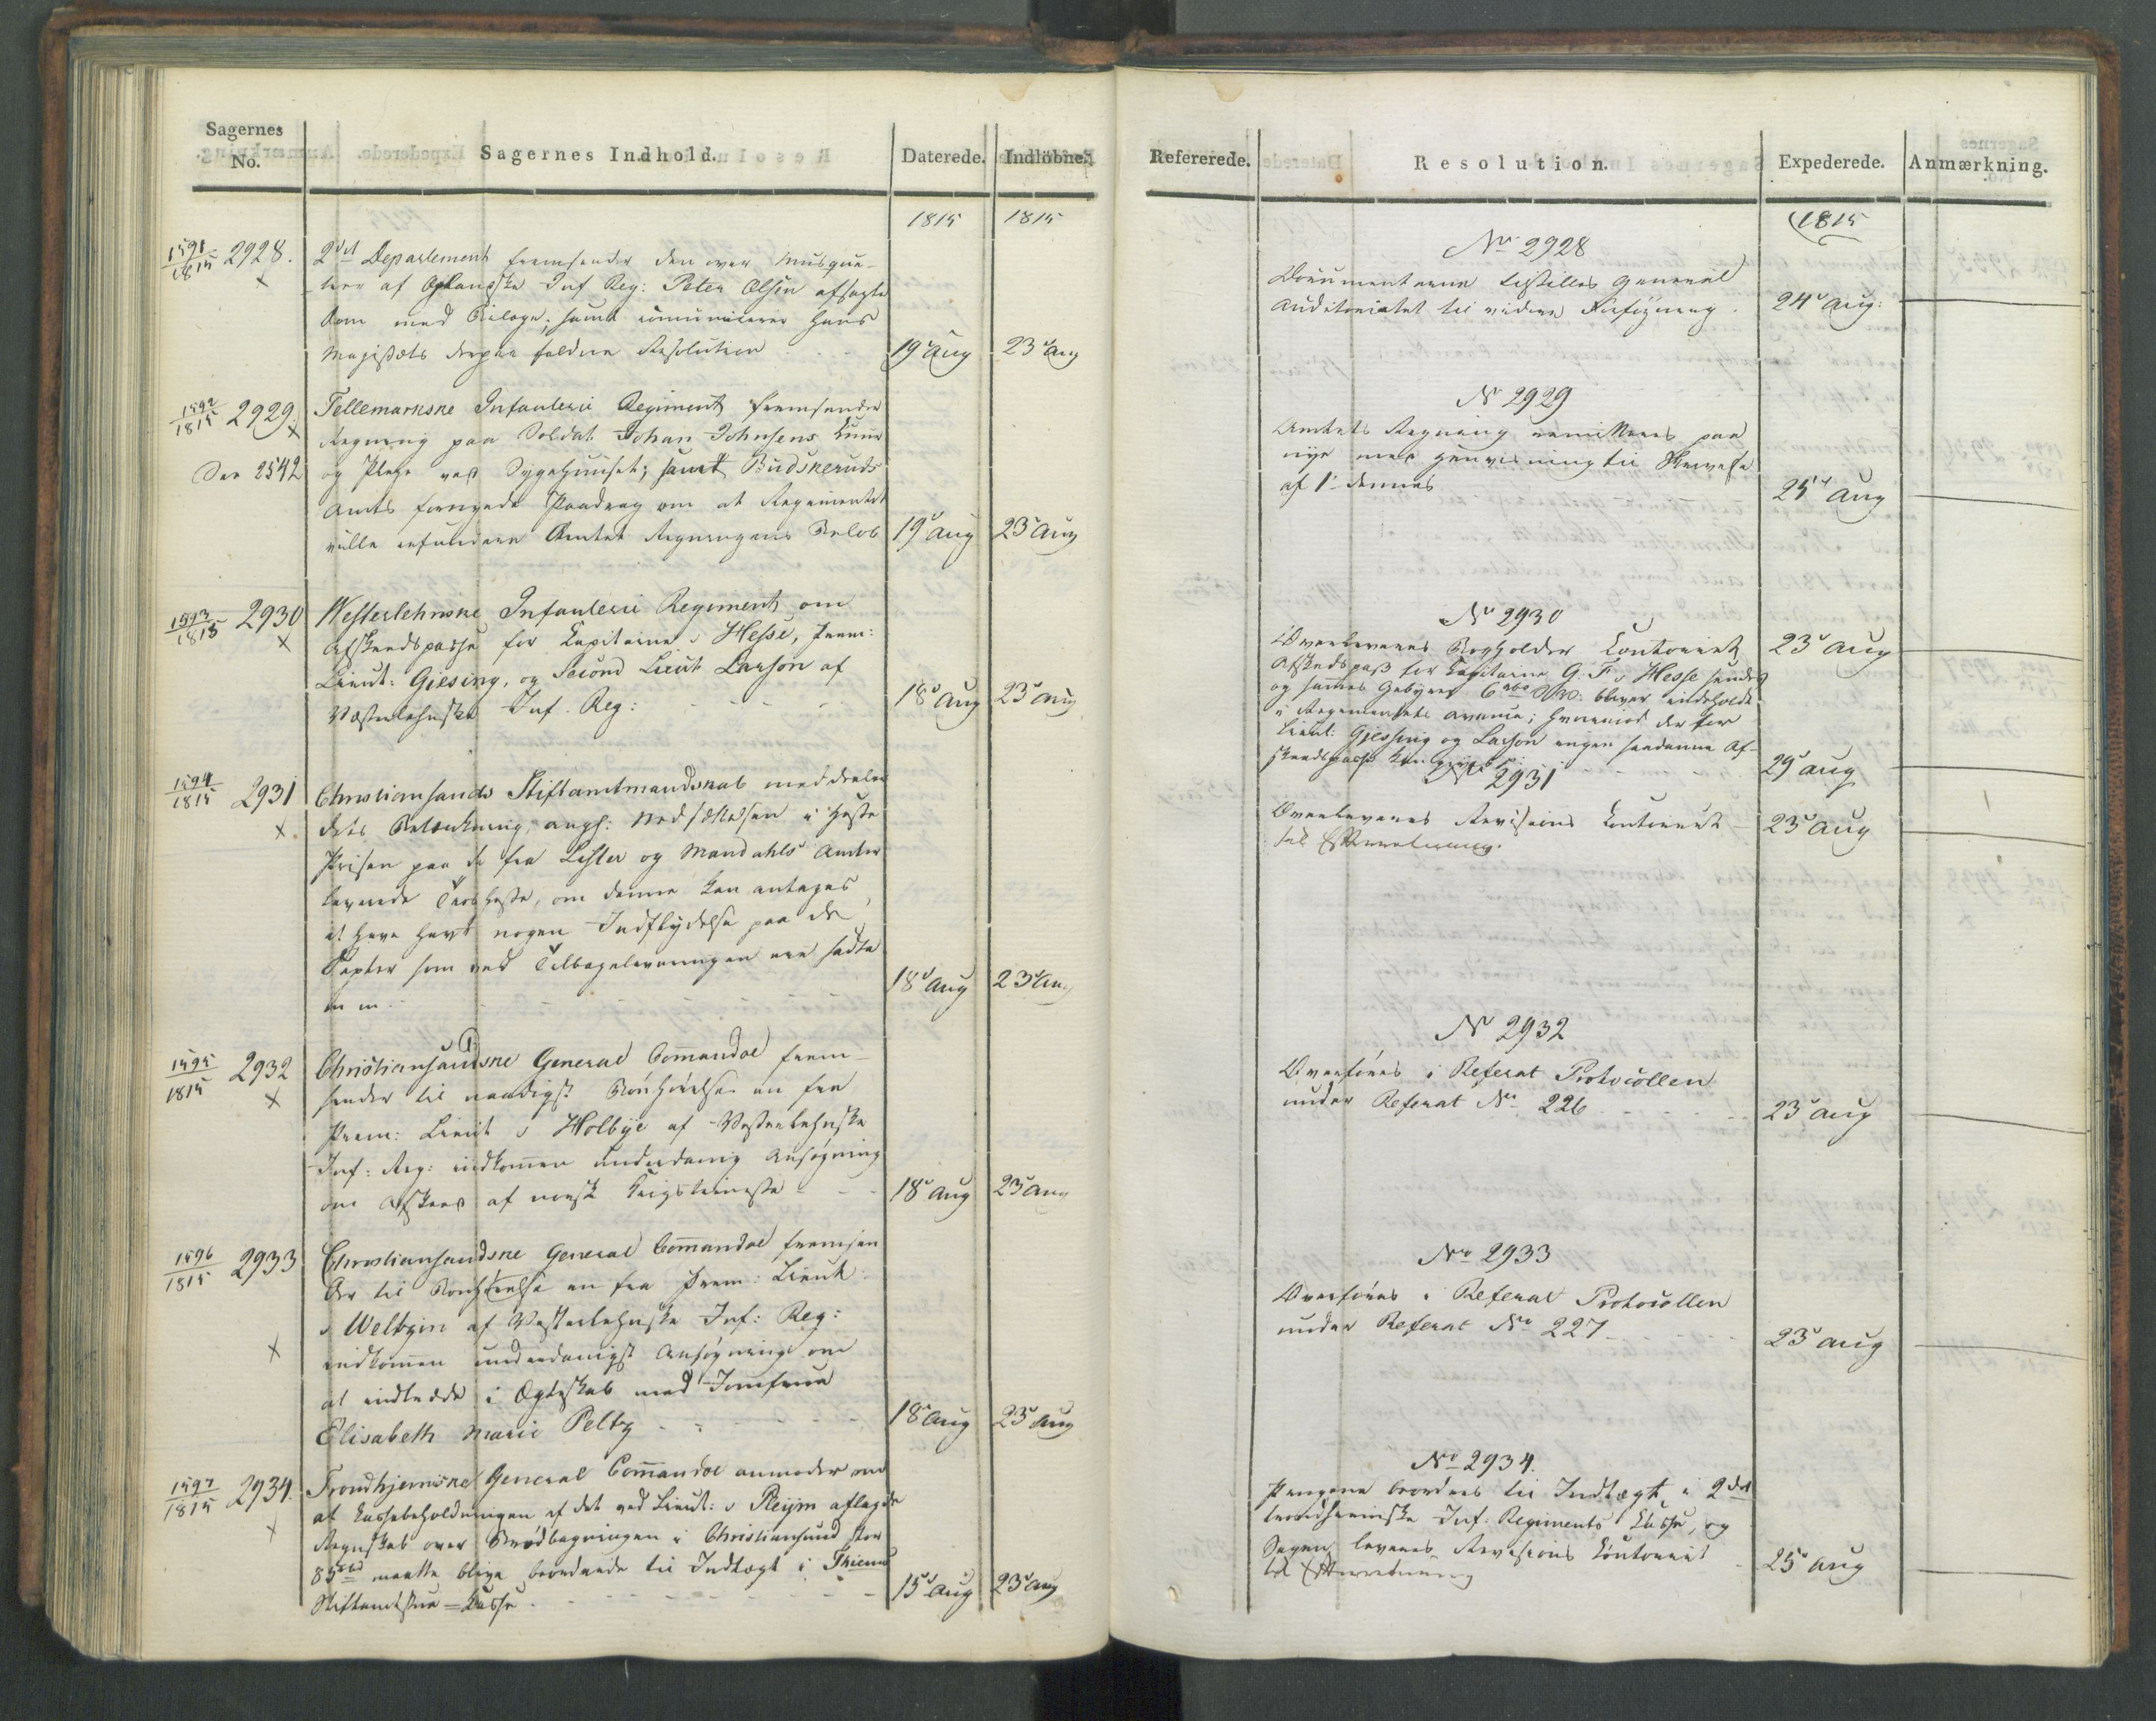 Sagernes
No.
Sagernes Indhold.
Daterede.
Indlöbne.
1815
1815
1591/1815 2928.
2det Departement fremsender den over Musque-
teer af Oplandske Inf Reg: Peter Olsen afsagte
Dom med Bilage, samt communicerer Hans
Majestæts derpaa faldne Resolution
19 Aug
23 Aug
1592/1815 2929
See 2542
Tellemarkske Infanterie Regiment fremsender
Regning paa Soldat Johan Johnsens Kuur
og Pleje ved Sygehuuset; samt Budskeruds
Amts fornyede Paadrag om at Regimentet
ville refundere Amtet Regningens Beløb
19 Aug
23 Aug
1593/1815 2930
Westerlehnske Infanterie Regiment om
Afskeedspasse for Capitaine v Hesse, Prem:
Lieut: Giesing, og Second Lieut Larson af
Vesterlehnske Inf. Reg:
18 Aug
23 Aug
1594/1815 2931
Christiansands Stiftamtmandskab meddeeler
dets Betænkning, angl: Nedsættelsen i Heste
Prisen paa de fra Lister og Mandahls Amter
leverede Trosheste, om denne kan antages
at have havt nogen Indflydelse paa de
Taxter som ved Tilbageleveringen ere sadte
m m.
18 Aug
23 Aug
1595/1815 2932
Christiansandske General Commandoe frem-
sender til naadigst Bønhørelse en fra
Prem: Lieut v Holbye af Vesterlehnske
Inf: Reg: indkommen underdanig Ansøgning
om Afskeed af norsk Krigstieneste
18 Aug
23 Aug
1596/1815 2933
Christiansandske General Commandoe fremsen
der til Bønhørelse en fra Prem: Lieut:
v Weltzin af Vesterlehnske Inf: Reg:
indkommen underdanigst Ansøgning om
at indtræde i Ægteskab med Jomfrue
Elisabeth Marie Peltz
18 Aug
23 Aug
1597/1815 2934.
Trondhjemske General Commandoe anmoder om
at Cassebeholdningen af det ved Lieut: v Reijm aflagde
Regnskab over Brødbagningen i Christiansund stor
85 rbd maatte blive beordrede til Indtægt i Thiems
Stiftamtstue-Casse.
15 Aug
23 Aug
Refererede.
Resolution.
Expederede.
Anmærkning.
1815
No 2928
Documenterne tilstilles General
Auditoriatet til videre Forføyning.
24 Aug:
No 2929
Amtets Regning remitteres paa
nye med henviisning til Skrivelse
af 1 dennes
25 Aug
No 2930
Overleveres Bogholder Contoiret
23 Aug
Afskedspass for Capitaine G. F. v Hesse sendes
og sammes Gebyrer 6 rbd bliver indeholdt
i Regimentets Avance; hvorimod der for
Lieut: Gjessing og Larson ingen saadanne Af-
skeedspasse kan
29 Aug
No 2931
Overleveres Revisions Contoiret
til Efterretning.
23 Aug
No 2932
Overføres i Referat Protocollen
under Referat No 226
23 Aug
No 2933
Overføres i Referat Protocollen
under Referat No 227
23 Aug
No 2934.
Pengene beordres til Indtægt i 2det
trondhiemske Inf: Regiments Casse, og
Sagen leveres Revisions Contoiret
til Efterretning
25 Aug